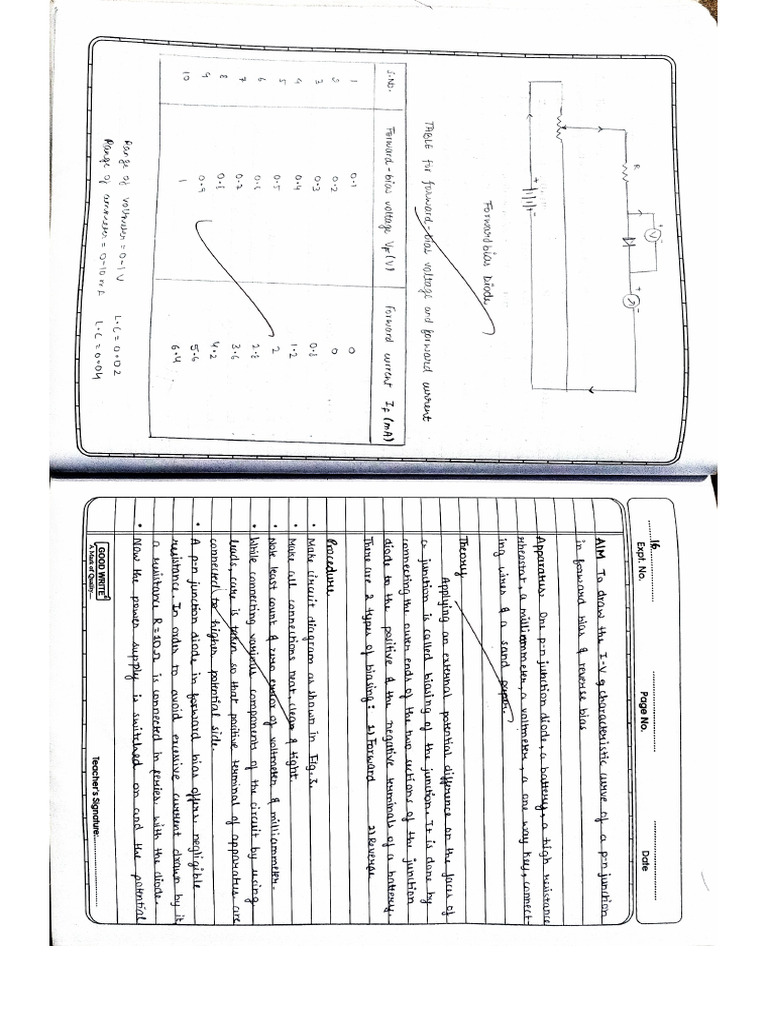 R
V
Forward bias Diode
TABLE for forward-bias voltage and forward current
S.No. Forward-bias voltage VF (V) Forward current IF (mA)
1 0.1 0
2 0.2 0
3 0.3 0.8
4 0.4 1.2
5 0.5 2
6 0.6 2.8
7 0.7 3.6
8 0.8 4.2
9 0.9 5.6
10 1 6.4
Range of voltmeter = 0-1 V L.C = 0.02
Range of ammeter = 0-10 mA L.C = 0.04
16
Expt. No. Page No. Date
AIM To draw the I-V characteristic curve of a p-n junction
in forward bias & reverse bias
Apparatus: One p-n junction diode, a battery, a high resistance
rheostat, a milliammeter, a voltmeter, a one way key, connect-
ing wires & a sand paper.
Theory
Applying an external potential difference on the faces of
a junction is called biasing of the junction. It is done by
connecting the outer ends of the two sections of the junction
diode to the positive & the negative terminals of a battery.
There are 2 types of biasing: 1) Forward 2) Reverse
Procedure
• Make circuit diagram as shown in Fig. 3.
• Make all connections neat, clean & tight
• Note least count & zero error of voltmeter & milliammeter.
• While connecting various components of the circuit by using
leads, care is taken so that positive terminal of apparatus are
connected to higher potential side.
• A p-n junction diode in forward bias offers negligible
resistance. In order to avoid excessive current drawn by it
a resistance R=10Ω is connected in series with the diode.
• Now the power supply is switched on and the potential
GOOD WRITE
A Mark of Quality...
Teacher's Signature: